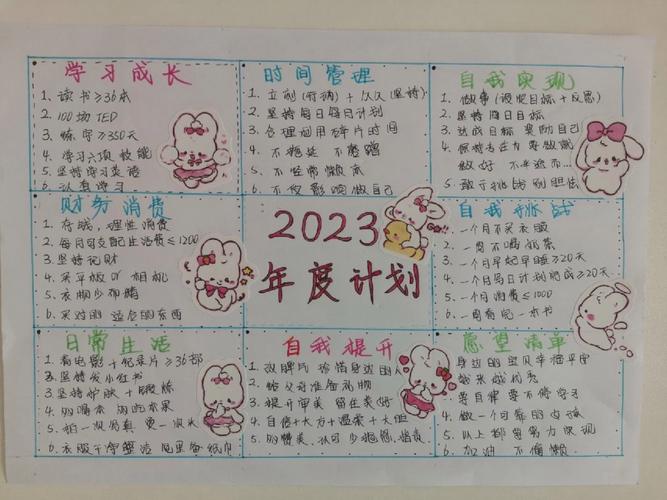 学习成长
1. 读书≥36本
2. 100场TED
3. 练字≥350天
4. 学习六项技能
5. 坚持学习英语
6. 认真学习
时间管理
1. 立刻(行动)+久久(坚持)
2. 坚持每日每日计划
3. 合理利用碎片时间
4. 不拖延 不磨蹭
5. 不经常懒床
6. 不受影响做自己
自我实现
1. 做事(设定目标+反思)
2. 坚持每日目标
3. 达成目标 奖励自己
4. 保持
做好 不半途而
5. 敢于挑战 别胆怯
财务消费
1. 存钱,理性消费
2. 每月可支配生活费≤1200
3. 坚持记财
4. 买平板 or 相机
5. 衣服少而精
6. 买对的 适合的东西
2023
年度计划
自我挑战
1. 一个月不买衣服
2. 一周不喝奶茶
3. 一个月早起早睡≥20天
4. 一个月每日计划完成≥20天
5. 一个月消费≤1000
6. 一周看完一本书
日常生活
1. 看电影+纪录片≥36部
2. 坚持发小红书
3. 坚持护肤+锻炼
4. 奶茶 水果
5. 拍一次写真 更一次
6. 衣服干净整洁 包里备纸巾
自我提升
1. 珍惜身边的人
2. 给父母准备礼物
3. 提升审美
4. 自信+大方+温柔+大胆
5. 赞美,认可 少抱怨,指责
愿望清单
1. 身边的宝贝幸福平安
2. 越来越优秀
3. 要自律 要不断学习
4. 做一个可靠的
5. 以上都要努力实现
6. 加油 不偷懒